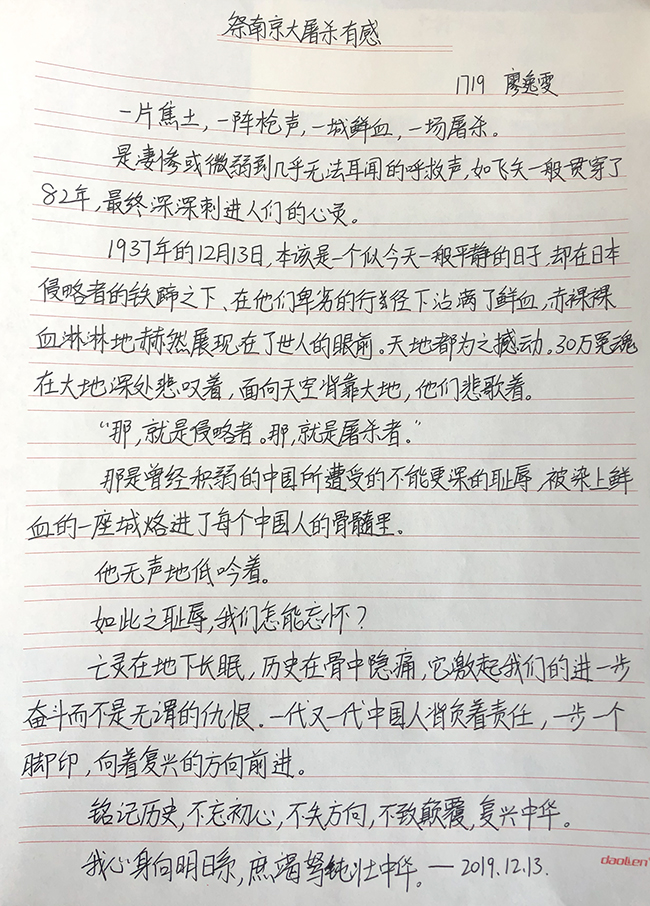 祭南京大屠杀有感
1719 廖逸雯
一片焦土，一阵枪声，一城鲜血，一场屠杀。
是凄惨或微弱到几乎无法耳闻的呼救声，如飞矢一般贯穿了
82年，最终深深刺进人们的心灵。
1937年的12月13日，本该是一个似今天一般平静的日子，却在日本
侵略者的铁蹄之下、在他们卑劣的行径下沾满了鲜血，赤裸裸
血淋淋地赫然展现在了世人的眼前。天地都为之撼动。30万冤魂
在大地深处悲叹着，面向天空背靠大地，他们悲歌着。
“那，就是侵略者。那，就是屠杀者。”
那是曾经积弱的中国所遭受的不能更深的耻辱，被染上鲜
血的一座城烙进了每个中国人的骨髓里。
他无声地低吟着。
如此之耻辱，我们怎能忘怀？
亡灵在地下长眠，历史在骨中隐痛，它激起我们的进一步
奋斗而不是无谓的仇恨。一代又一代中国人背负着责任，一步一个
脚印，向着复兴的方向前进。
铭记历史，不忘初心，不失方向，不致颠覆，复兴中华。
我心身向明日系，庶竭驽钝壮中华。—2019.12.13.
daolien